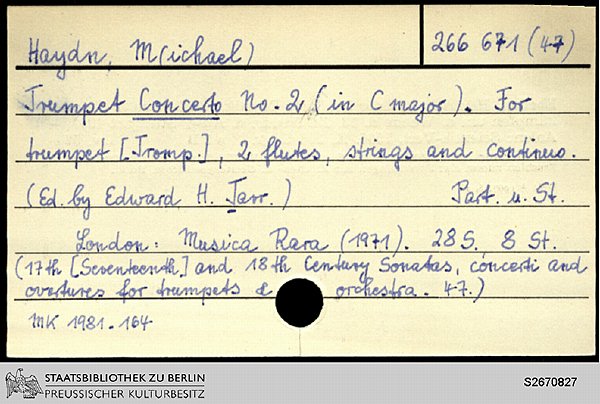 Haydn, M(ichael)
266 671 (47)
Trumpet Concerto No. 2 (in C major). For
trumpet [Tromp.], 2 flutes, strings and continuo.
(Ed. by Edward H. Tarr.) Part. u. St.
London: Musica Rara (1971). 28 S. 8 St.
(17th [Seventeenth] and 18th Century Sonatas, concerti and
overtures for trumpets & orchestra. 47.)
MK 1981.164
STAATSBIBLIOTHEK ZU BERLIN
PREUSSISCHER KULTURBESITZ
S2670827